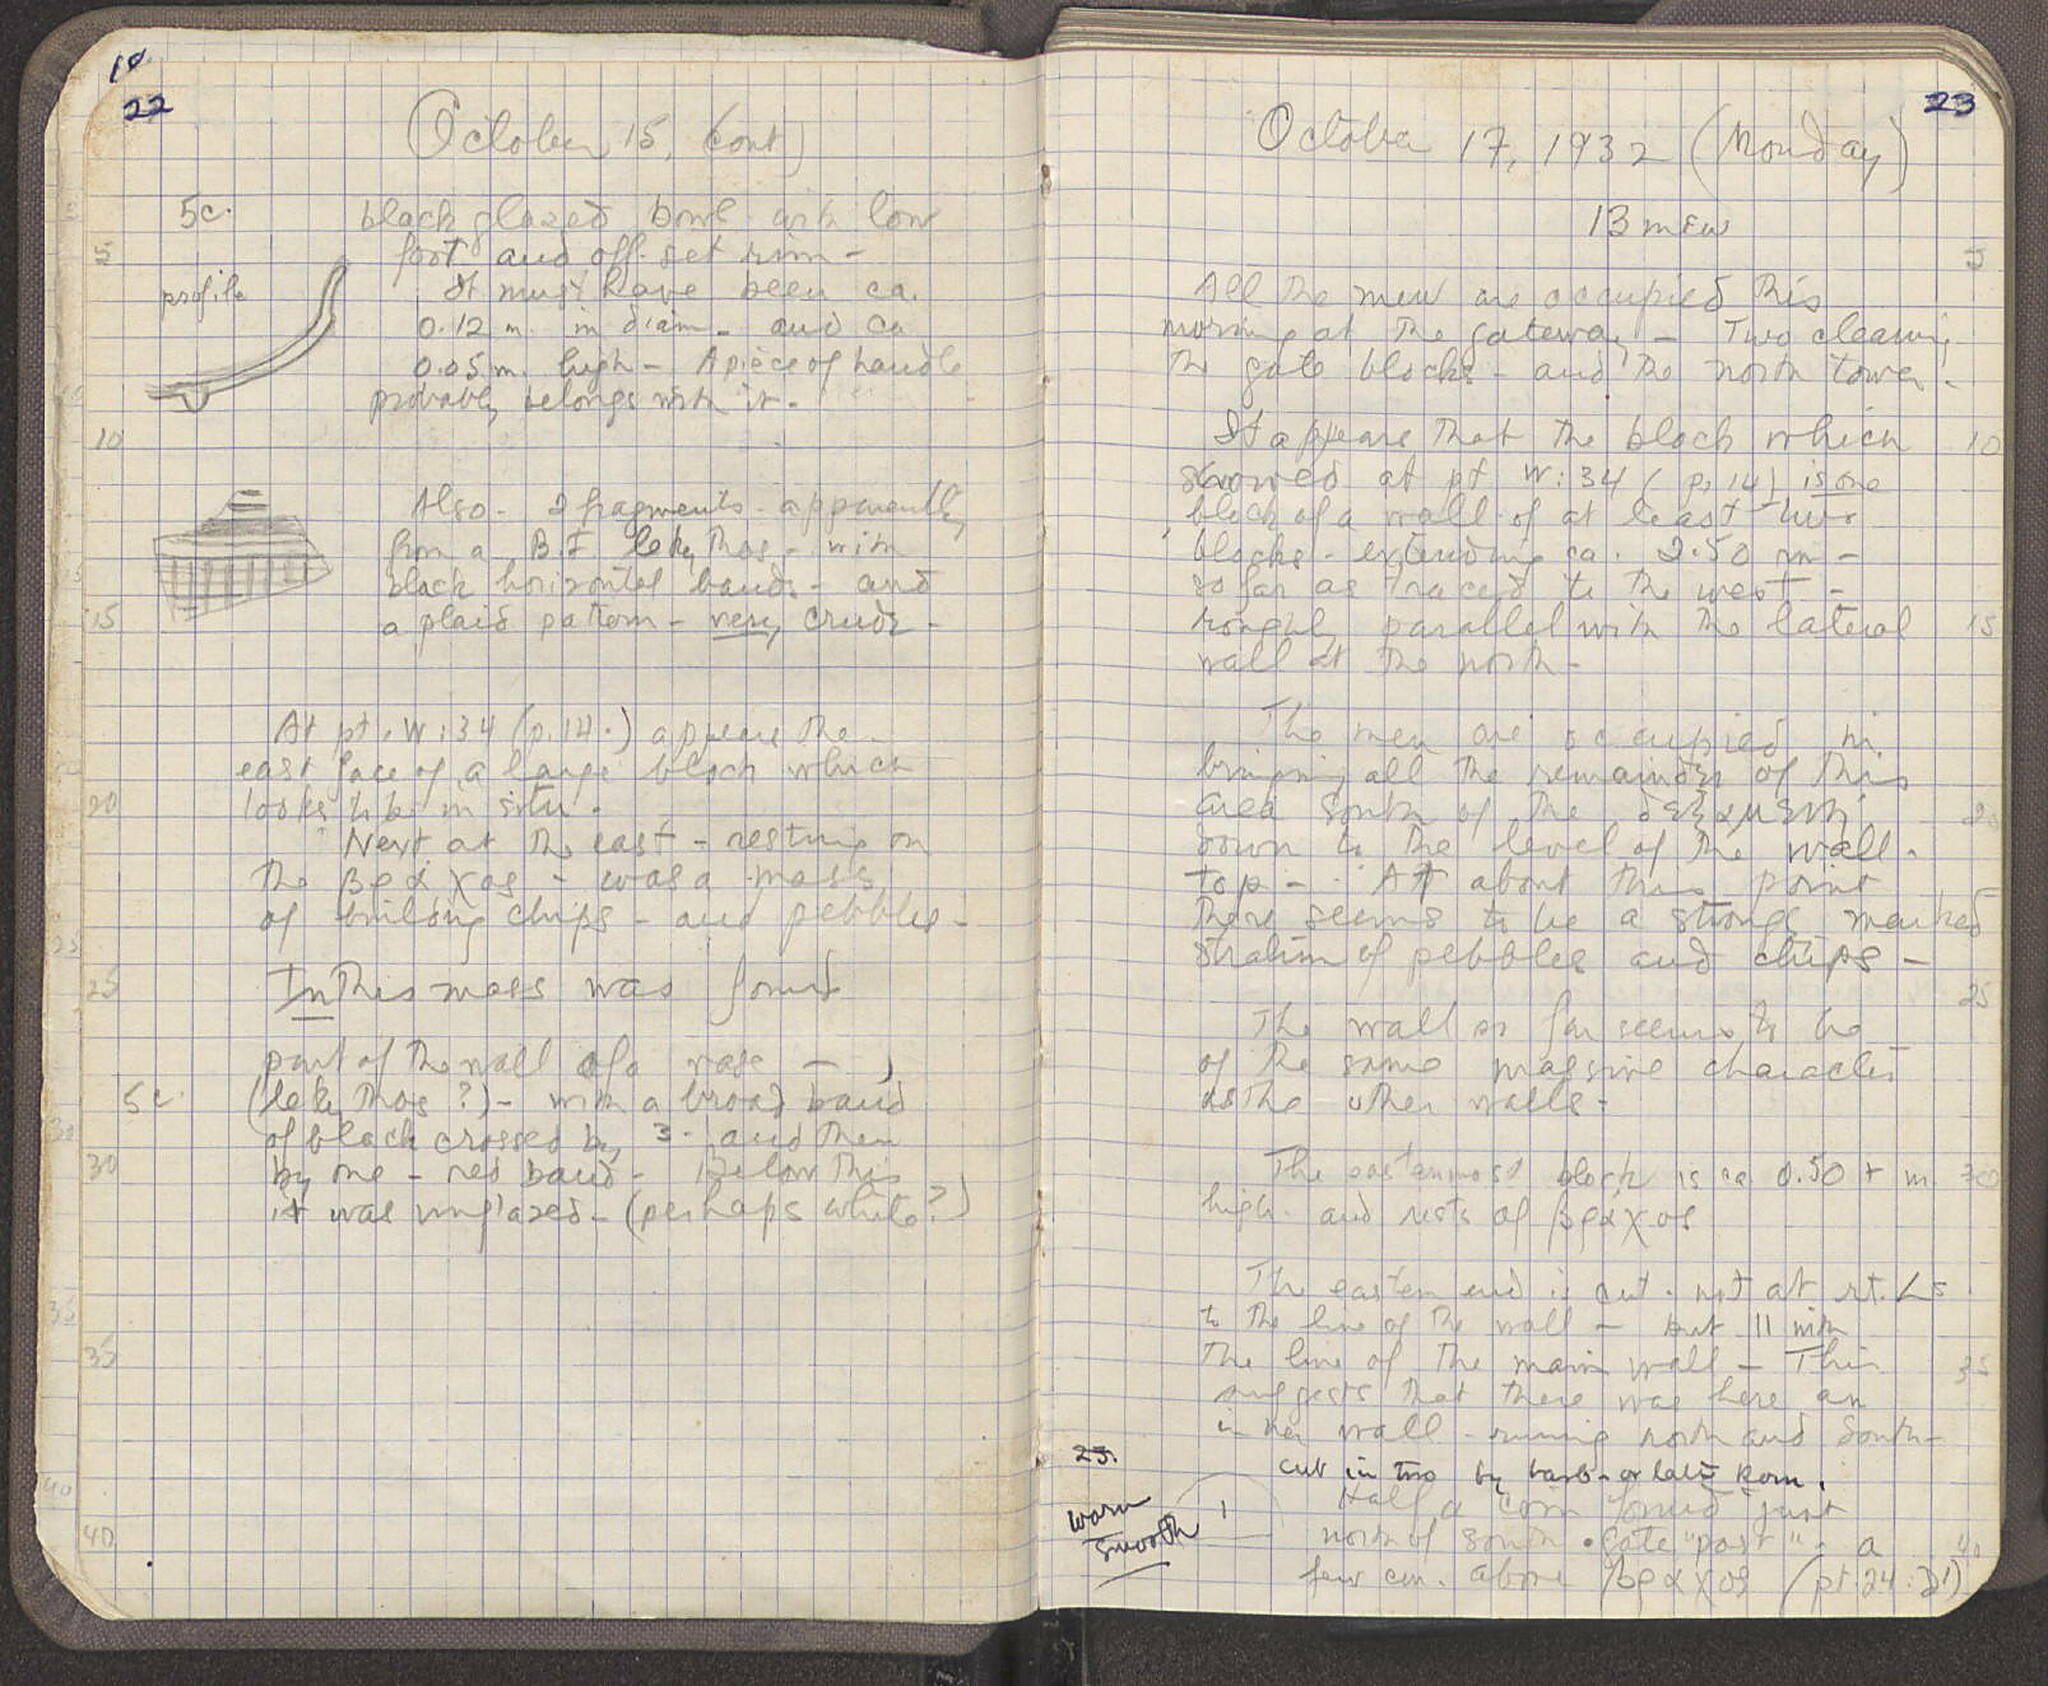 10
22
October 15, (cont)
5c.
black glazed bowl with low
foot and off-set rim -
profile
It must have been ca.
0.12 m. in diam. and ca
0.05 m. high - A piece of handle
probably belongs with it -
Also - 2 fragments - apparently
from a B.F. lekythos - with
black horizontal bands - and
a plaid pattern - very crude -
At pt. W:34 (p.14.) appears the
east face of a large block which
looks to be in situ.
Next at the east - resting on
the βράχος - was a mass
of building chips - and pebbles -
In this mass was found
part of the wall of a vase -
5c.
(lekythos?) - with a broad band
of black crossed by 3 - and then
by one - red band - Below this
it was unglazed - (perhaps white?)
5
10
15
20
25
30
35
40
23
October 17, 1932 (Monday)
13 men
All the men are occupied this
morning at the gateway - Two cleaning
the gate blocks - and the north tower -
It appears that the block which
showed at pt W:34 (p.14) is one
block of a wall of at least two
blocks - extending ca. 2.50 m -
so far as traced to the west -
roughly parallel with the lateral
wall at the north -
The men are occupied in
bringing all the remainder of this
area south of the δεξαμενή
down to the level of the wall.
top - At about this point
there seems to be a strongly marked
stratum of pebbles and chips -
The wall so far seems to be
of the same massive character
as the other walls -
The easternmost block is ca 0.50 + m.
high - and rests of βράχος
The eastern end is cut - not at rt. ∠s
to the line of the wall - but || with
the line of the main wall - This
suggests that there was here an
inner wall - running north and south -
cut in two by barb - or late Rom.
23.
worn
smooth
1
Half a coin found just
north of south gate "post" - a
few cm. above βράχος (pt. 24:21)
5
10
15
20
25
30
35
40